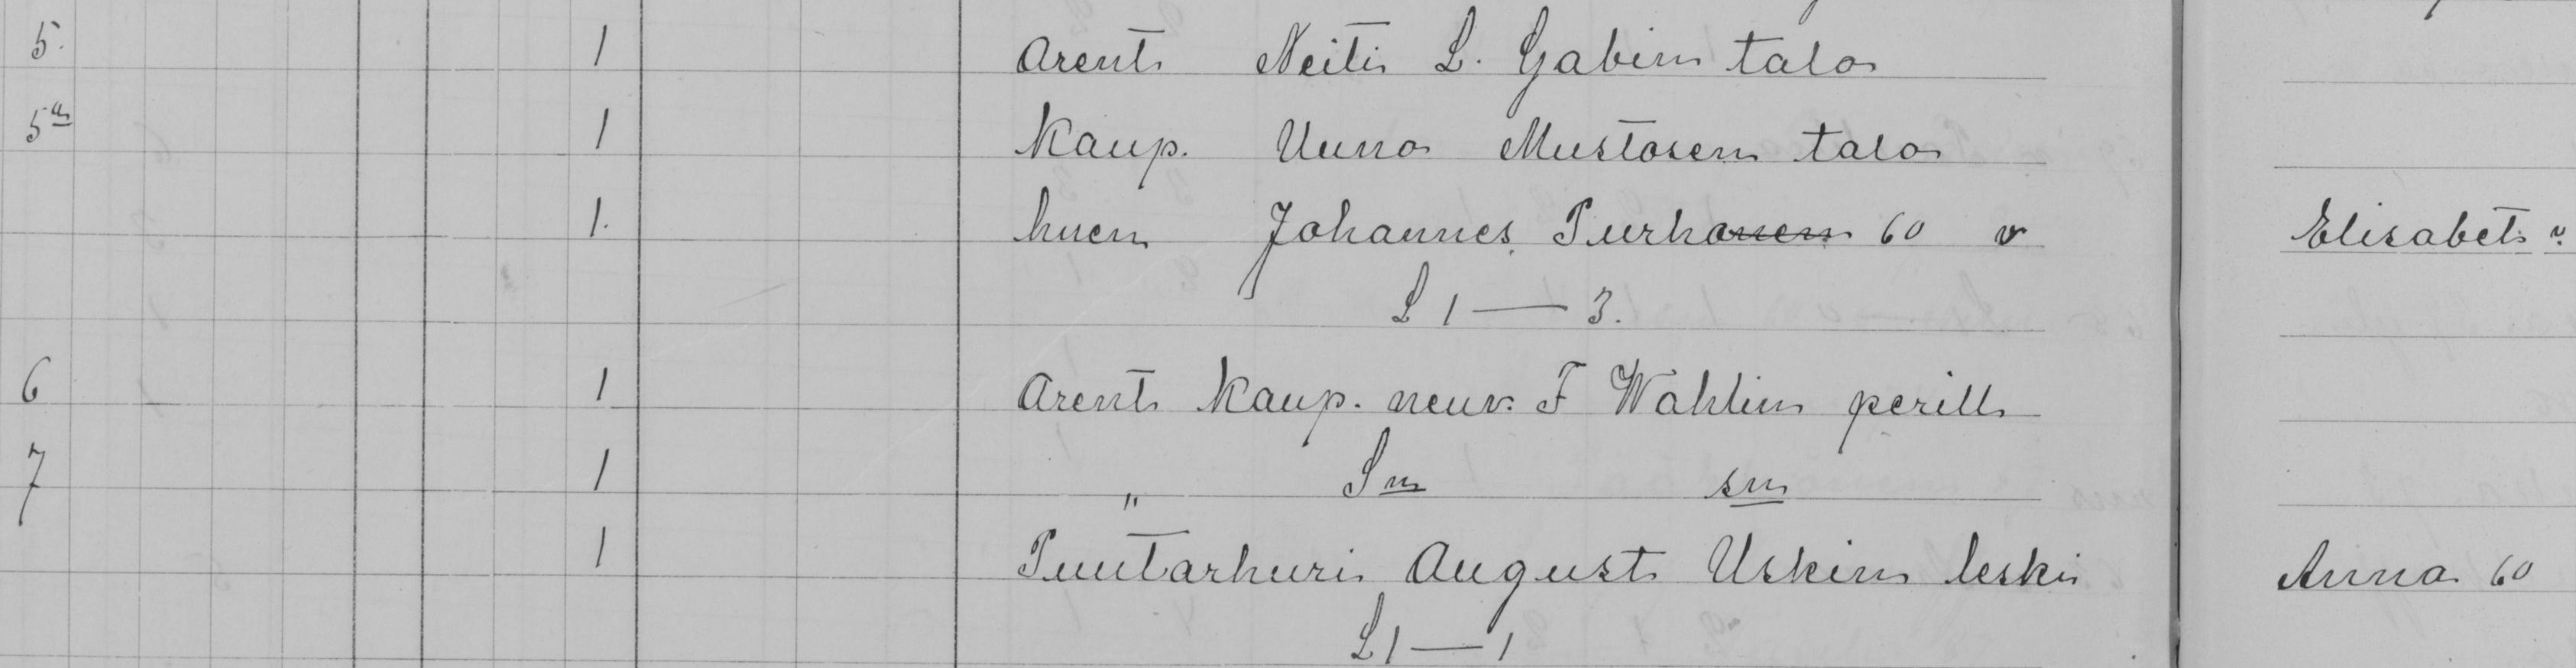 5. 1 Arent Neiti L. Gabin talo
5a 1 Kaup. Uuno Mustosen talo
1. huen Johannes Purhonen 60 v Elisabet v
L 1 — 3.
6 1 Arent Kaup. neuv. F Wahlin perill
7 1 " Sn sn
1 Puutarhuri August Uskin leski Anna 60
L 1 — 1